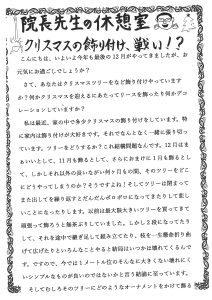 院長先生の休憩室
クリスマスの飾り付け、戦い！？
こんにちは、いよいよ今年も最後の12月がやってきましたが、お
元気にお過ごしでしょうか？
さて、あなたはクリスマスツリーなど飾り付けやっています
か？何かクリスマスを迎えるにあたってリースを飾ったり何かデコ
レーションしていますか？
私は最近、家の中で多少クリスマスの飾り付けをしています。特
に家内は飾り付けが大好きです。それでなんとなく一緒に張り切っ
ています。でもどうでしょうか？これ結構問題なんです。12月はま
あいいとして、11月も飾るとして、さらにおまけに1月も飾るとし
て、しかしそれ以外の長いながい何ヶ月もの間、そのツリーをどこ
にどうやってしまうのか？そうですよね！そしてツリーは閉まって
また出してを繰り返すとだんだんボロボロになってきたりして悲し
いことになったりします。以前は最大級大きいツリーを買ってきて
頑張って飾ろうと無茶ぶりしていました。しかし2段になってたり
して、それを途中で継ぎ足して組み立てたり、枝を一生懸命折り曲
げて広げたりといろんなことやると結局はいつかは壊れてくるんで
す。ですので、今では1メートル位のそんなに大きくない壊れにく
いシンプルなものが良いのではないかと言う結論に至っています。
そしてむしろそのツリーにどのようなオーナメントをかけて飾る